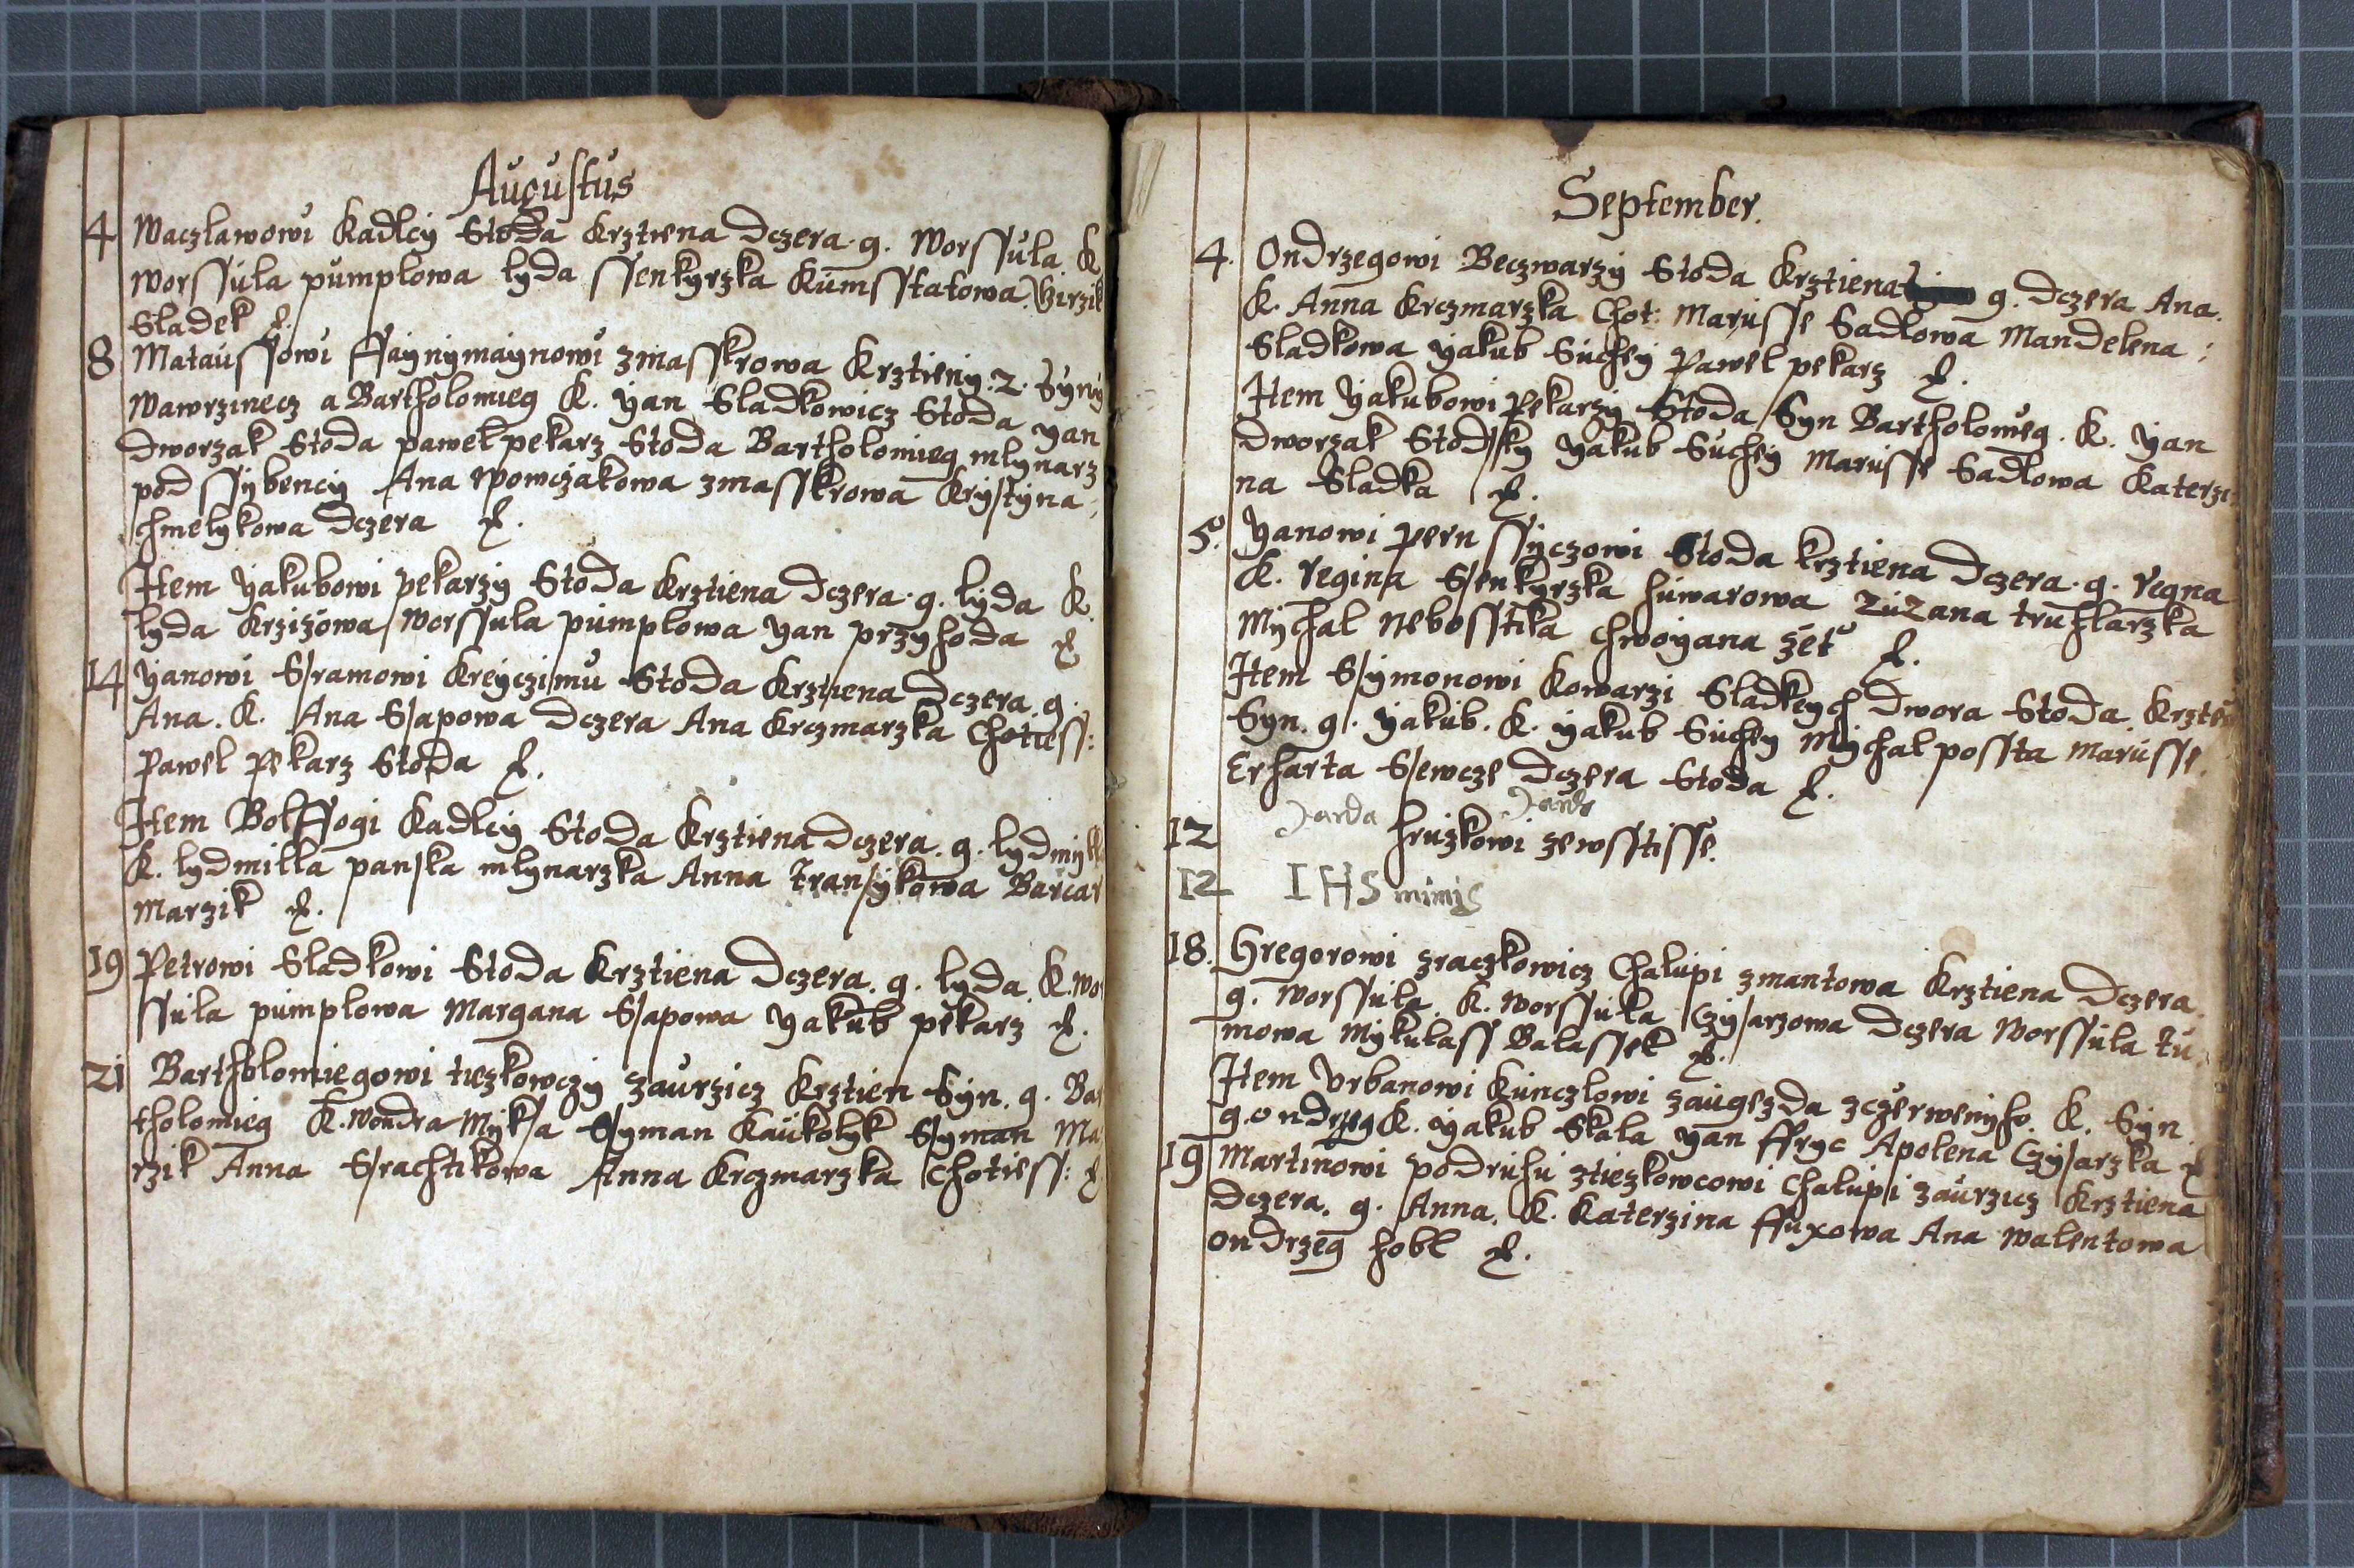 Augustus
4 Waczlawowi Kadlcy Stoda Krztiena Dczera. g. Worssula. K
Worssula pumplowa lyda ssenkyrzka Kumsstatowa Virzik
Sladek
8 Mataussowi ffaynymaynowi zmasskrowa Krztieny. 2. Syny
Wawrzinecz a Bartholomieg K. yan Sladkowicz Stoda yan
Dworzak Stoda pawel pekarz Stoda Bartholomieg mlynarz
pod ssybency Ana wowczakowa zmasskrowa Krystyna
chmelykowa Dczera
Item yakubowi pekarzy Stoda Krztiena Dczera. g. lyda K.
lyda Krzizowa Worssula pumplowa yan przyhoda
14 yanowi Sramowi Kreyczimu Stoda Krztiena Dczera. g.
Ana. K. Ana Sapowa Dczera Ana Krczmarzka Chotiess:
pawel pekarz Stoda
Item Bolffogi Kadlcy Stoda Krztiena Dczera. g. lydmyll
K. lydmilla panska mlynarzka Anna Transykowa
Marzik
19 Petrowi Sladkowi Stoda Krztiena Dczera. g. lyda. K. Wo
ssula pumplowa Margana Sapowa yakub pekarz
21 Bartholomiegowi tuzkowczy zaurzicz Krztien Syn. g. Ba
tholomieg K. Wondra Myksa Syman Kaukolyk Syman Ma
rzik Anna Srachtikowa Anna Krczmarzka Chotiess:
September.
4. Ondrzegowi Beczwarzy Stoda Krztiena g. Dczera Ana.
K. Anna Krczmarzka Chot: Marusse Sadlowa Mandelena
Sladkowa yakub Suchey Pawel pekarz
Item yakubowi Pekarzy Stoda Syn Bartholomeg. K. yan
Dworzak Stodsky yakub Suchey Marusse Sadlowa Katerzi
na Sladka
5. yanowi pern ssyczowi Stoda krztiena Dczera. g. Regna
K. Regina Senkyrzka huwarowa Zuzana truhlarzka
Mychal Nebosstika chwoyana zet
Item Symonowi Kowarzi Sladkeych Dwora Stoda Krztie
Syn. g. yakub. K. yakub Suchey Mychal possta Marusse.
Erharta Sewcze Dczera Stoda
12 hruzkowi zewsstisse.
12 IHS
18. Gregorowi zraczkowicz Chalupi zmantowa Krztiena Dczera.
g. Worssula. K. Worssula Czysarzowa Dczera Worssula tu
mowa Mykulass Balassek
Item Vrbanowi Kunczlowi zaugezda zczerwenyho. K. Syn.
g. ondrzeg K. yakub Skala yan ffryc Apolena Czysarzka
19 Martinowi podruhu ztiezkowcowi Chalupi zaurzicz Krztiena
Dczera. g. Anna. K. Katerzina ffuxowa Ana Walentowa
Ondrzeg hobl